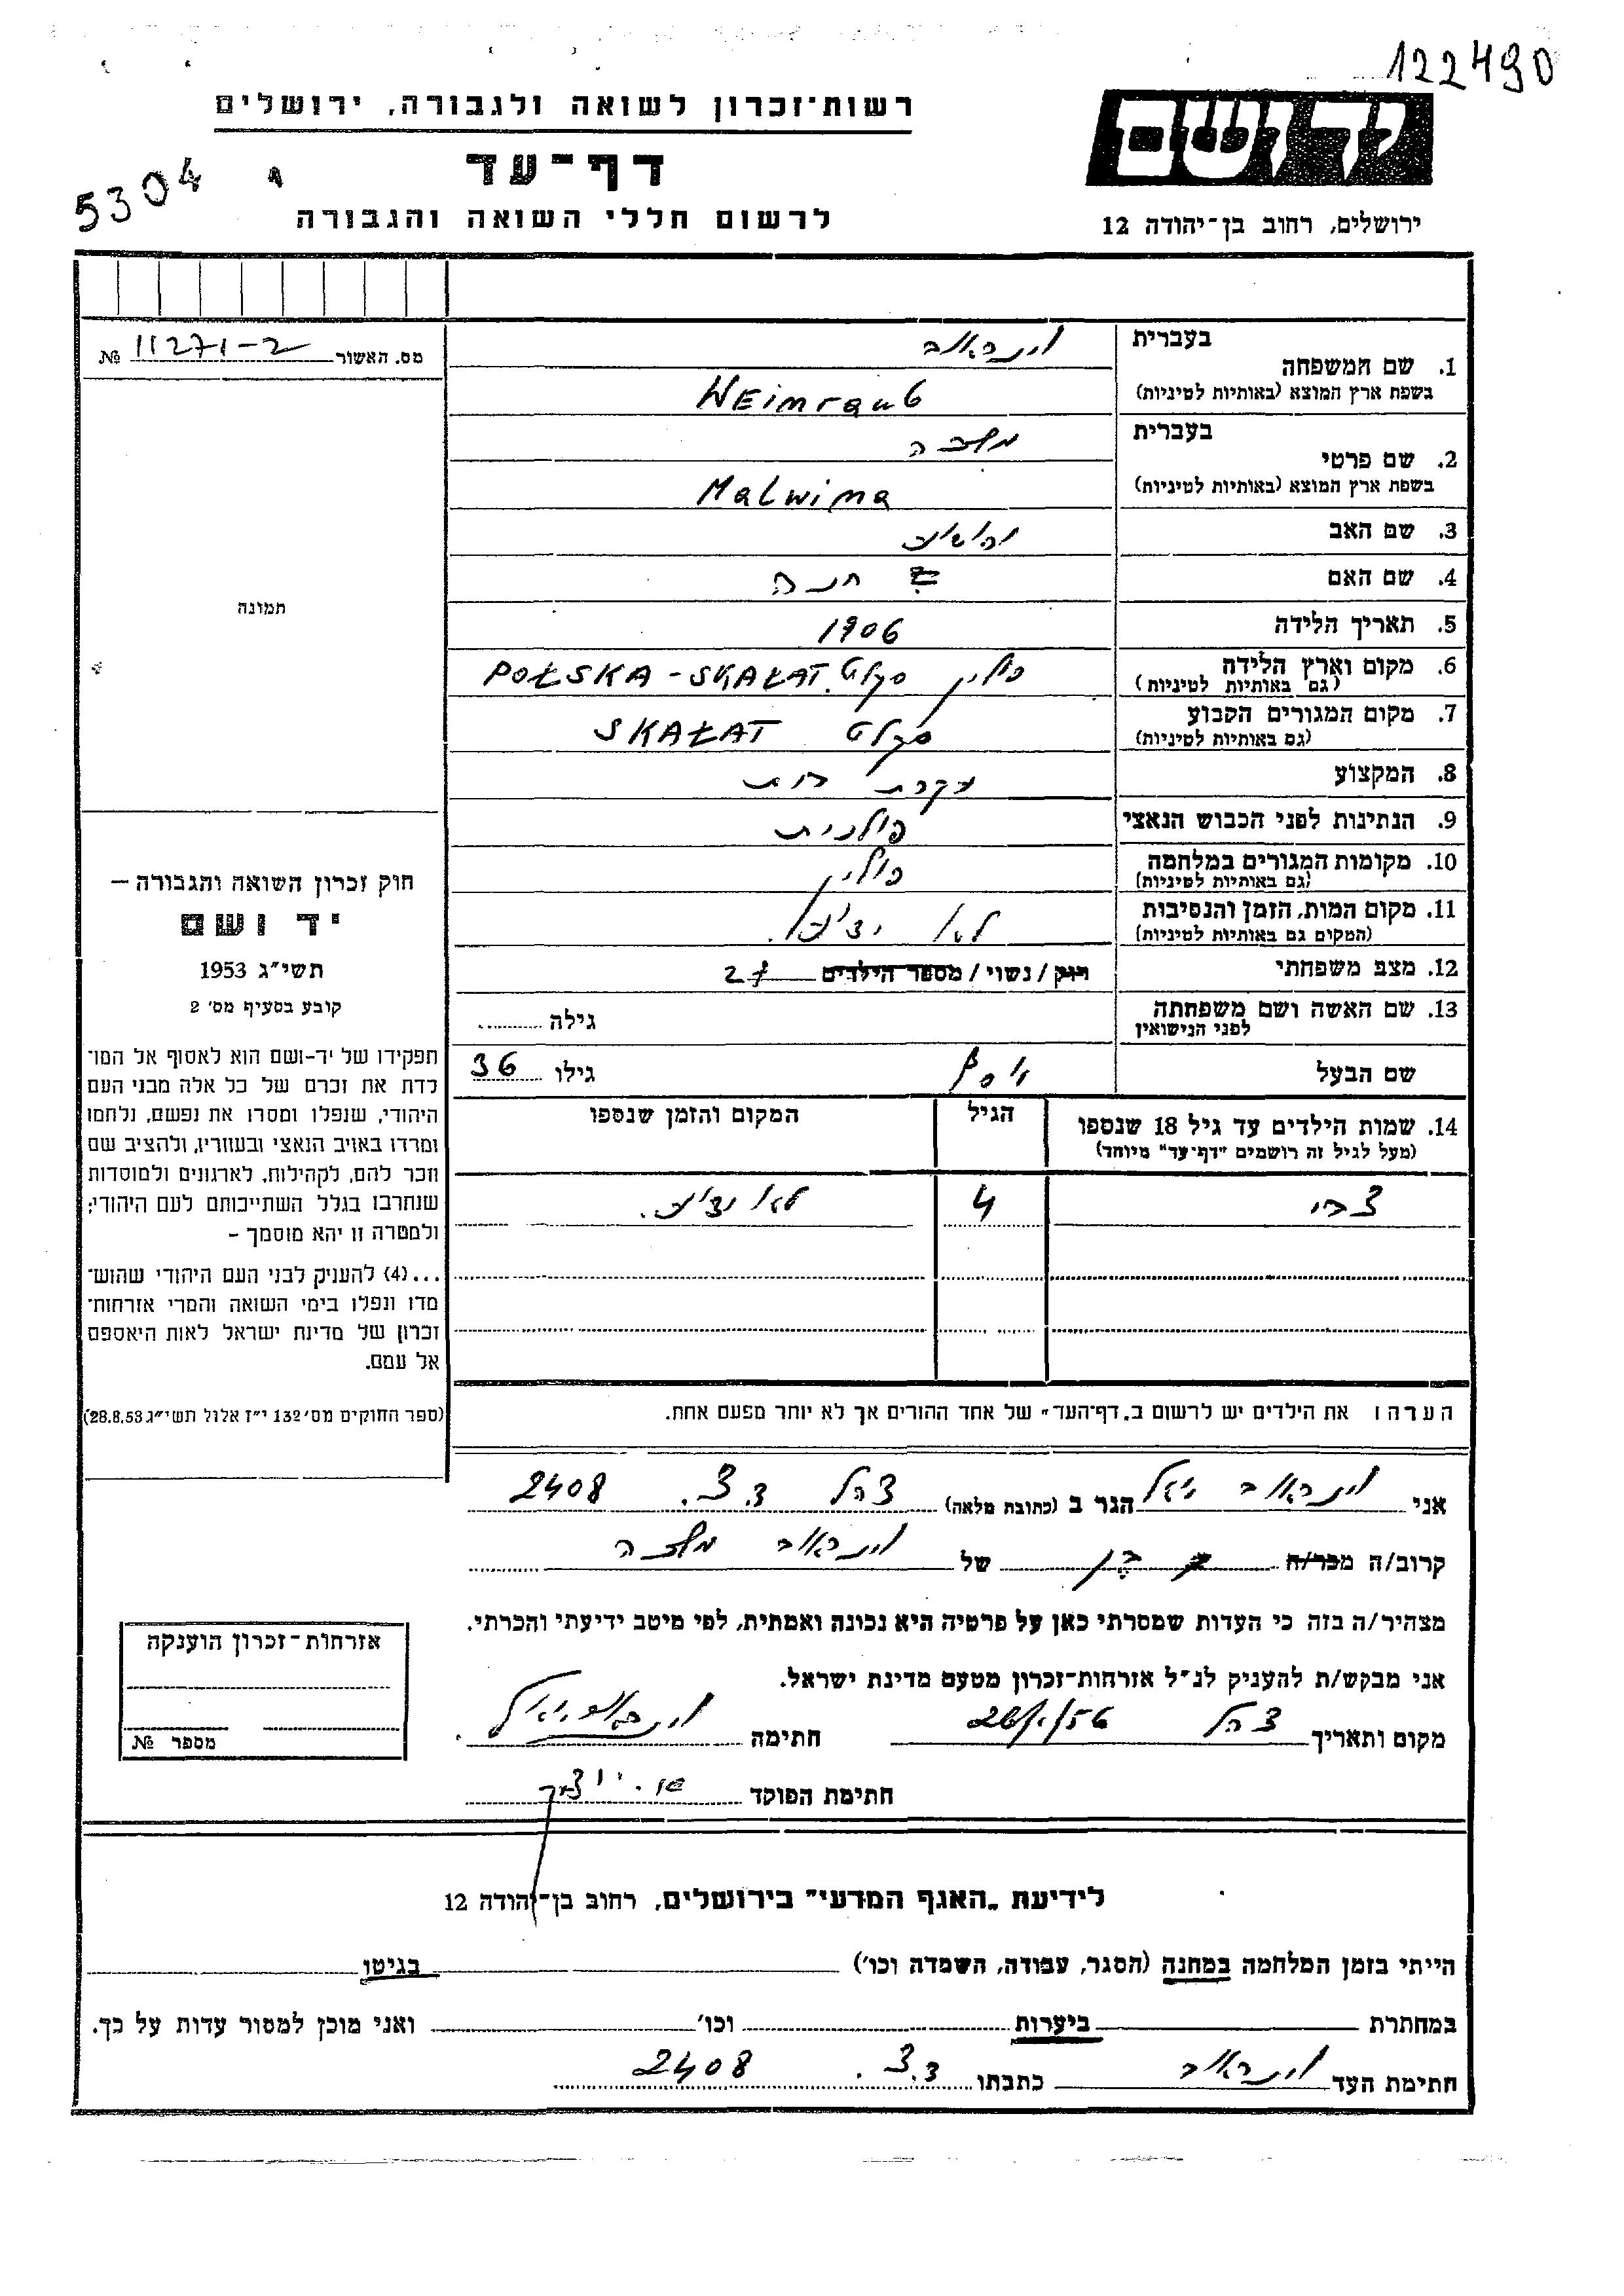 122490
רשות־זכרון לשואה ולגבורה, ירושלים
יד ושם
דף־עד
5304
לרשום חללי השואה והגבורה
ירושלים, רחוב בן־יהודה 12
מס. האשור № 11271-2
1. שם המשפחה בעברית וינראוב
בשפת ארץ המוצא (באותיות לטיניות) WEimraub
2. שם פרטי בעברית מלבינה
בשפת ארץ המוצא (באותיות לטיניות) Malwima
3. שם האב
4. שם האם חנה
5. תאריך הלידה 1906
6. מקום וארץ הלידה פולין סקלט POŁSKA - SKAŁAT
(גם באותיות לטיניות)
7. מקום המגורים הקבוע סקלט SKAŁAT
(גם באותיות לטיניות)
8. המקצוע עקרת בית
9. הנתינות לפני הכבוש הנאצי פולנית
10. מקומות המגורים במלחמה פולין
(גם באותיות לטיניות)
11. מקום המות, הזמן והנסיבות לא ידוע.
(המקום גם באותיות לטיניות)
12. מצב משפחתי רווק / נשוי / מספר הילדים 2
13. שם האשה ושם משפחתה גילה
לפני הנישואין
שם הבעל יוסף גילו 36
14. שמות הילדים עד גיל 18 שנספו הגיל המקום והזמן שנספו
(מעל לגיל זה רושמים "דף־עד" מיוחד)
צבי 4 לא ידוע.
הערה: את הילדים יש לרשום ב„דף־העד" של אחד ההורים אך לא יותר מפעם אחת.
תמונה
חוק זכרון השואה והגבורה —
יד ושם
תשי"ג 1953
קובע בסעיף מס' 2
תפקידו של יד-ושם הוא לאסוף אל המו־
לדת את זכרם של כל אלה מבני העם
היהודי, שנפלו ומסרו את נפשם, נלחמו
ומרדו באויב הנאצי ובעוזריו, ולהציב שם
וזכר להם, לקהילות, לארגונים ולמוסדות
שנחרבו בגלל השתייכותם לעם היהודי;
ולמטרה זו יהא מוסמך –
...(4) להעניק לבני העם היהודי שהוש־
מדו ונפלו בימי השואה והמרי אזרחות־
זכרון של מדינת ישראל לאות היאספם
אל עמם.
(ספר החוקים מס' 132 י"ז אלול תשי"ג 28.8.53)
אני וינראוב יואל הגר ב (כתובת מלאה) צהל ד.צ. 2408
קרוב/ה מכר/ה בן של וינראוב מלבינה
מצהיר/ה בזה כי העדות שמסרתי כאן על פרטיה היא נכונה ואמתית, לפי מיטב ידיעתי והכרתי.
אני מבקש/ת להעניק לנ"ל אזרחות־זכרון מטעם מדינת ישראל.
מקום ותאריך צהל 26/1/56 חתימה וינראוב יואל
חתימת הפוקד
אזרחות־זכרון הוענקה
מספר №
לידיעת „האגף המדעי" בירושלים, רחוב בן־יהודה 12
הייתי בזמן המלחמה במחנה (הסגר, עבודה, השמדה וכו') בגיטו
במחתרת ביערות וכו' ואני מוכן למסור עדות על כך.
חתימת העד וינראוב כתבתו ד.צ. 2408